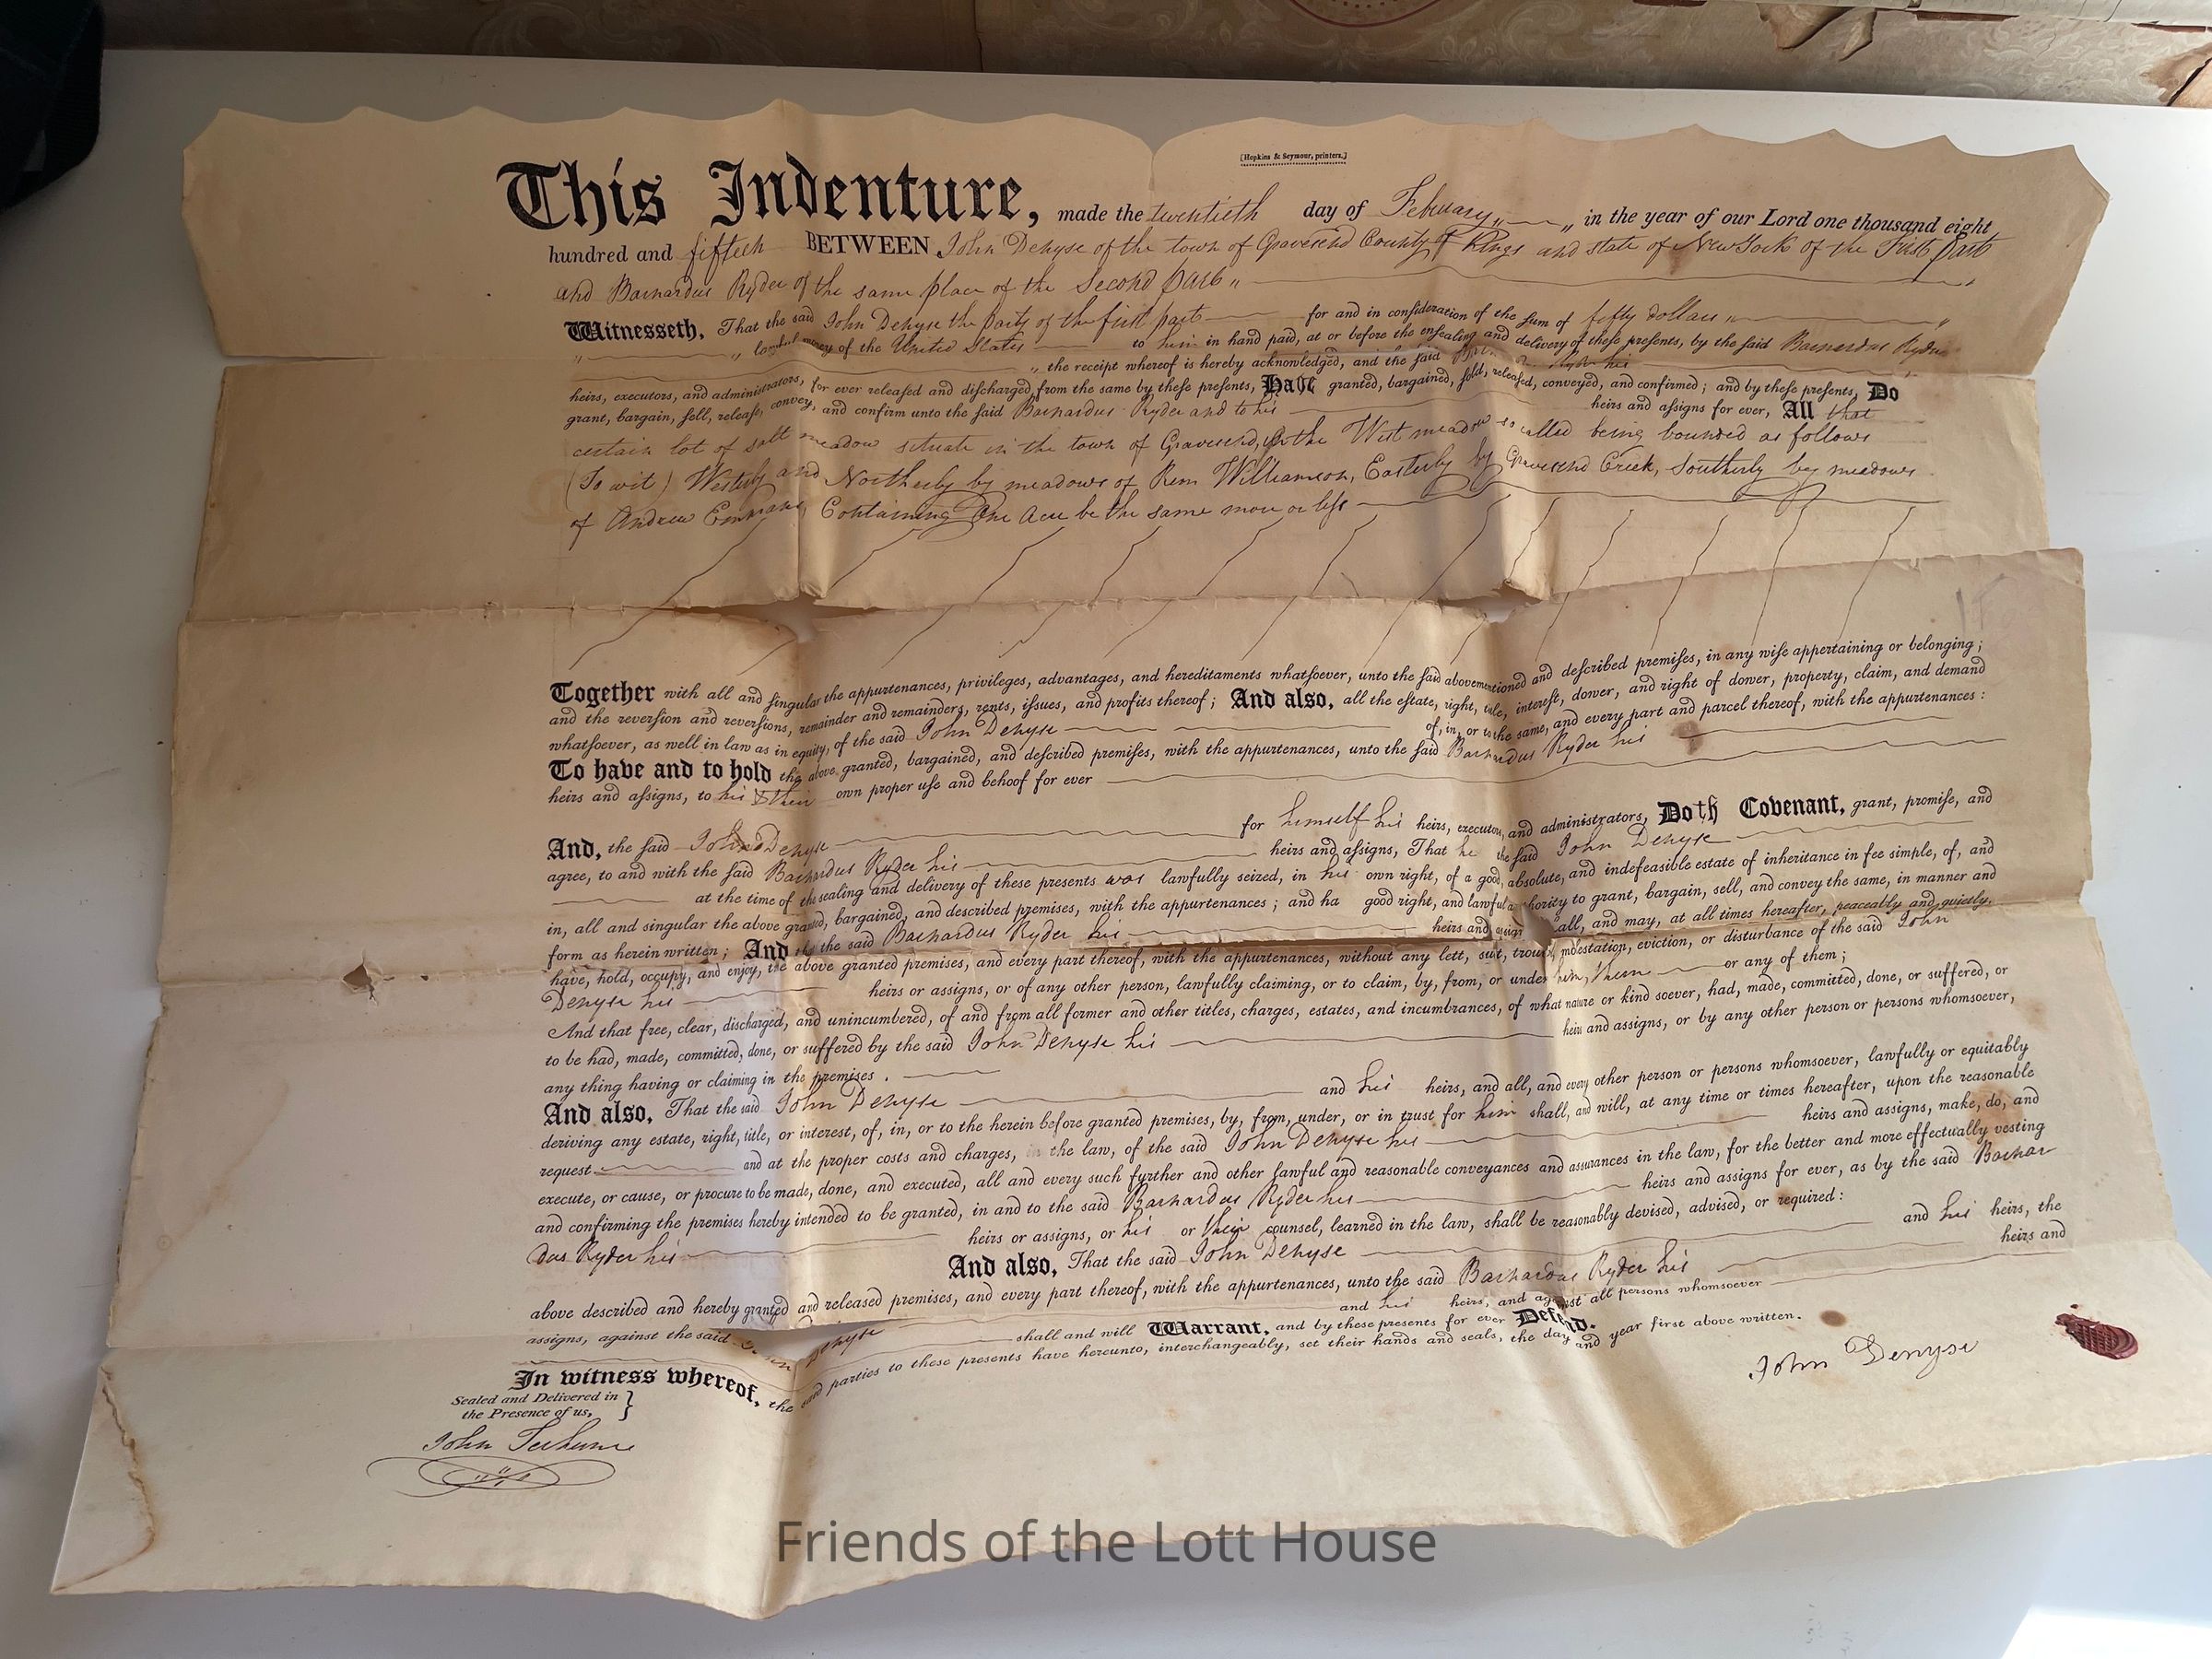 [Hopkins & Seymour, printers.]
This Indenture, made the twentieth day of February in the year of our Lord one thousand eight
hundred and fifteen BETWEEN John Denyse of the town of Gravesend County of Kings and state of New York of the First Part
and Barnardus Ryder of the same place of the Second Part
Witnesseth, That the said John Denyse the party of the first part for and in consideration of the sum of fifty dollars
lawful money of the United States to him in hand paid, at or before the ensealing and delivery of these presents, by the said Barnardus Ryder
the receipt whereof is hereby acknowledged, and the said his
heirs, executors, and administrators, for ever released and discharged from the same by these presents, Have granted, bargained, sold, released, conveyed, and confirmed; and by these presents, Do
grant, bargain, sell, release, convey, and confirm unto the said Barnardus Ryder and to his heirs and assigns for ever, All that
certain lot of salt meadow situate in the town of Gravesend, in the West meadow so called being bounded as follows
(To wit) Westerly and Northerly by meadows of Rem Williamson, Easterly by Gravesend Creek, Southerly by meadows
of Andrew Emmans, Containing One Acre be the same more or less
Together with all and singular the appurtenances, privileges, advantages, and hereditaments whatsoever, unto the said abovementioned and described premises, in any wise appertaining or belonging;
and the reversion and reversions, remainder and remainders, rents, issues, and profits thereof; And also, all the estate, right, title, interest, dower, and right of dower, property, claim, and demand
whatsoever, as well in law as in equity, of the said John Denyse of, in, or to the same, and every part and parcel thereof, with the appurtenances:
To have and to hold the above granted, bargained, and described premises, with the appurtenances, unto the said Barnardus Ryder his
heirs and assigns, to his & their own proper use and behoof for ever
And, the said John Denyse for himself his heirs, executors, and administrators, Doth Covenant, grant, promise, and
agree, to and with the said Barnardus Ryder his heirs and assigns, That he the said John Denyse
at the time of the sealing and delivery of these presents was lawfully seized, in his own right, of a good, absolute, and indefeasible estate of inheritance in fee simple, of, and
in, all and singular the above granted, bargained, and described premises, with the appurtenances; and ha good right, and lawful authority to grant, bargain, sell, and convey the same, in manner and
form as herein written; And that the said Barnardus Ryder his heirs and assigns shall, and may, at all times hereafter, peaceably and quietly,
have, hold, occupy, and enjoy, the above granted premises, and every part thereof, with the appurtenances, without any lett, suit, trouble, molestation, eviction, or disturbance of the said John
Denyse his heirs or assigns, or of any other person, lawfully claiming, or to claim, by, from, or under him, them or any of them;
And that free, clear, discharged, and unincumbered, of and from all former and other titles, charges, estates, and incumbrances, of what nature or kind soever, had, made, committed, done, or suffered, or
to be had, made, committed, done, or suffered by the said John Denyse his heirs and assigns, or by any other person or persons whomsoever,
any thing having or claiming in the premises.
And also, That the said John Denyse and his heirs, and all, and every other person or persons whomsoever, lawfully or equitably
deriving any estate, right, title, or interest, of, in, or to the herein before granted premises, by, from, under, or in trust for him shall, and will, at any time or times hereafter, upon the reasonable
request and at the proper costs and charges, in the law, of the said John Denyse his heirs and assigns, make, do, and
execute, or cause, or procure to be made, done, and executed, all and every such further and other lawful and reasonable conveyances and assurances in the law, for the better and more effectually vesting
and confirming the premises hereby intended to be granted, in and to the said Barnardus Ryder his heirs and assigns for ever, as by the said Barnar
dus Ryder his heirs or assigns, or his or their counsel, learned in the law, shall be reasonably devised, advised, or required:
And also, That the said John Denyse and his heirs, the
above described and hereby granted and released premises, and every part thereof, with the appurtenances, unto the said Barnardus Ryder his heirs and
assigns, against the said John Denyse and his heirs, and against all persons whomsoever
shall and will Warrant, and by these presents for ever Defend.
In witness whereof, the said parties to these presents have hereunto, interchangeably, set their hands and seals, the day and year first above written.
Sealed and Delivered in
the Presence of us,
John Terhune
John Denyse
Friends of the Lott House